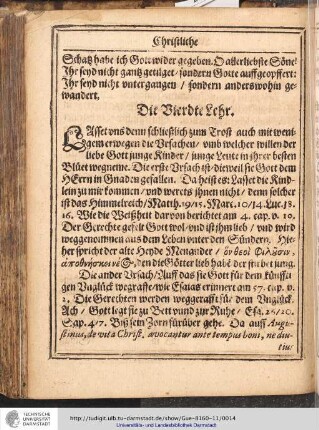 Christliche
Schatz habe ich Gott wider gegeben. O allerliebste Söne!
Ihr seyd nicht gantz getilget / sondern Gotte auffgeopffert:
Ihr seyd nicht untergangen / sondern anderswohin ge-
wandert.
Die Vierdte Lehr.
LAsset vns denn schließlich zum Trost auch mit weni-
gem erwegen die Vrsachen / vmb welcher willen der
liebe Gott junge Kinder / junge Leute in ihrer besten
Blüet wegneme. Die erste Vrsach ist / dieweil sie Gott dem
HErrn in Gnaden gefallen. Da heist es: Lasset die Kind-
lein zu mir kommen / vnd weret jhnen nicht / denn solcher
ist das Himmelreich / Matth. 19/15. Marc. 10/14. Luc. 18.
16. Wie die Weißheit darvon berichtet am 4. cap. v. 10.
Der Gerechte gefelt Gott wol / vnd ist ihm lieb / vnd wird
weggenommen aus dem Leben vnter den Sündern. Hie-
her spricht der alte Heyde Menander /
den die Götter lieb haben / der stirbet jung.
Die ander Vrsach / Auff das sie Gott für dem künffti-
gen Vnglück wegraffe / wie Esaias erinnert am 57. cap. v.
2. Die Gerechten werden weggerafft für dem Vnglück.
Ach / Gott legt sie zu Bett vnd zur Ruhe / Esa. 26/20.
Sap. 4/7. Biß sein Zorn fürüber gehe. Da auff Augu-
stinus, de vita Christ, avocantur ante tempus boni, ne diu-
tius
TECHNISCHE
UNIVERSITÄT
DARMSTADT
http://tudigit.ulb.tu-darmstadt.de/show/Gue-8160-11/0014
Universitäts- und Landesbibliothek Darmstadt